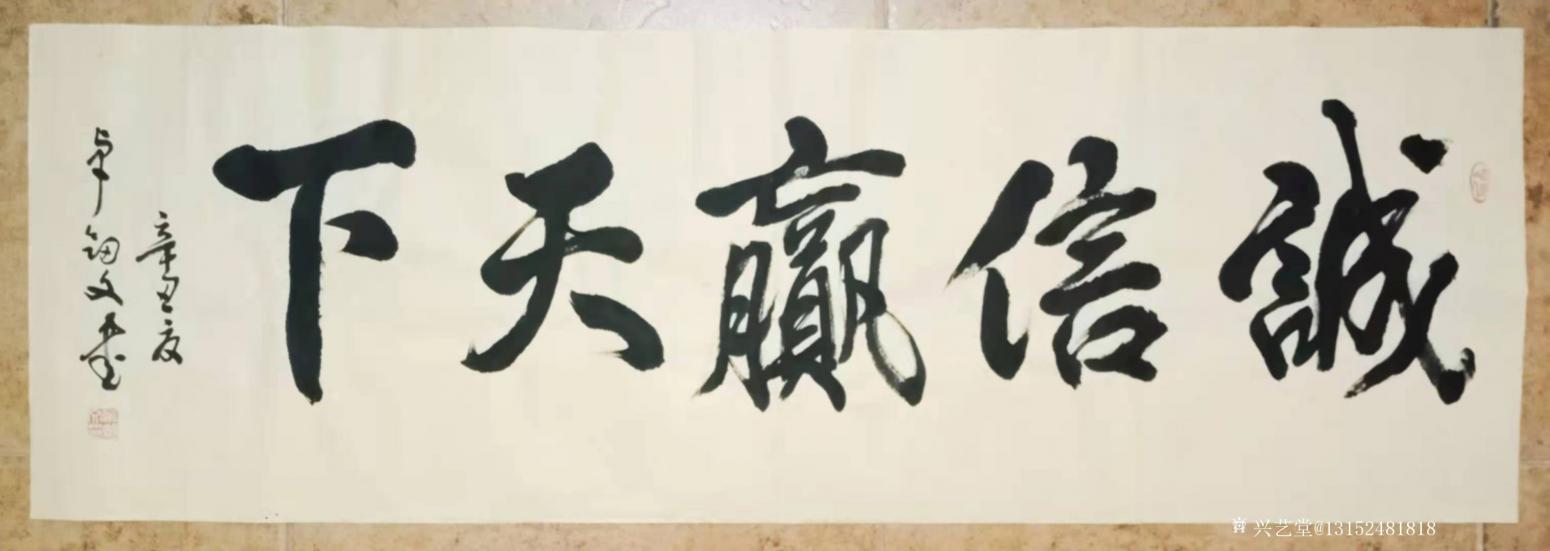 誠信贏天下
辛丑夏
卓 文
兴艺堂@13152481818